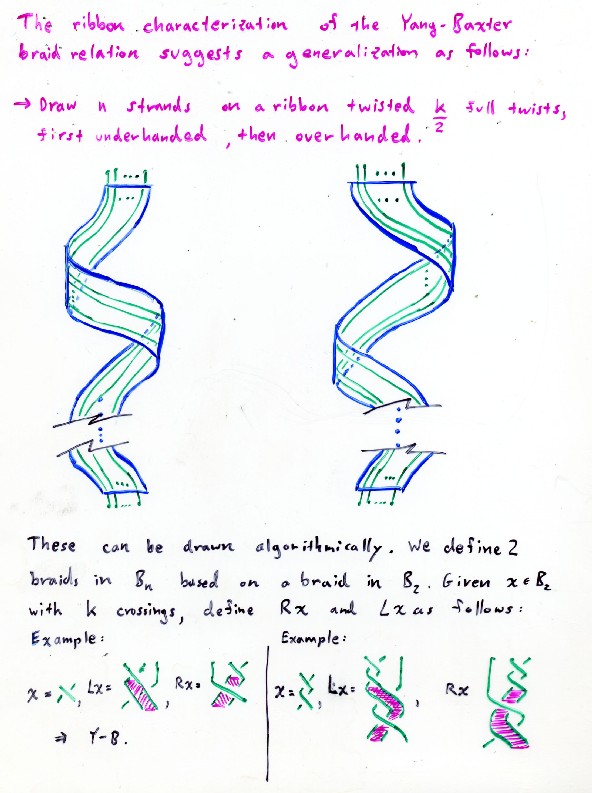 The ribbon characterization of the Yang-Baxter
braid relation suggests a generalization as follows:
→ Draw n strands on a ribbon twisted k/2 full twists,
first underhanded, then overhanded.
...
...
...
...
...
...
...
...
These can be drawn algorithmically. We define 2
braids in Bₙ based on a braid in B₂. Given x ∈ B₂
with k crossings, define Rx and Lx as follows:
Example:
Example:
x = , Lx = , Rx =
x = , Lx = , Rx
⇒ Y-B.